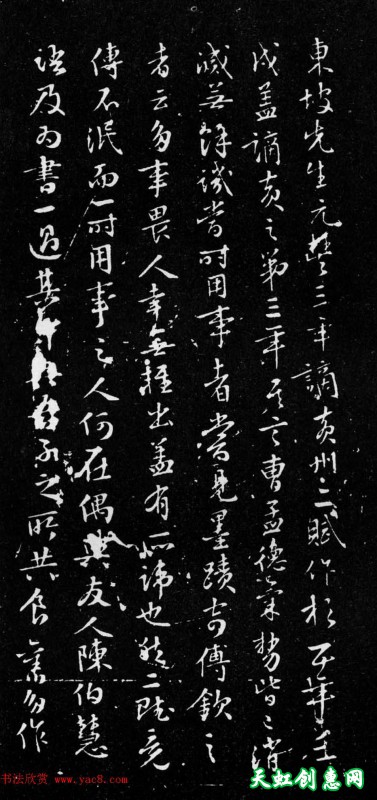 東坡先生元豐三年謫黃州二賦作於五年壬
戌蓋謫黃之第三年其言曹孟德氣勢皆已消
滅無餘譏當時用事者嘗見墨蹟寄傅欽之
者云多事畏人幸無輕出蓋有所諱也然二賦竟
傳不泯而一時用事之人何在偶與友人陳伯慧
談及為書一過其
之所共食舊多作
书法欣赏 www.yac8.com
天虹创惠网